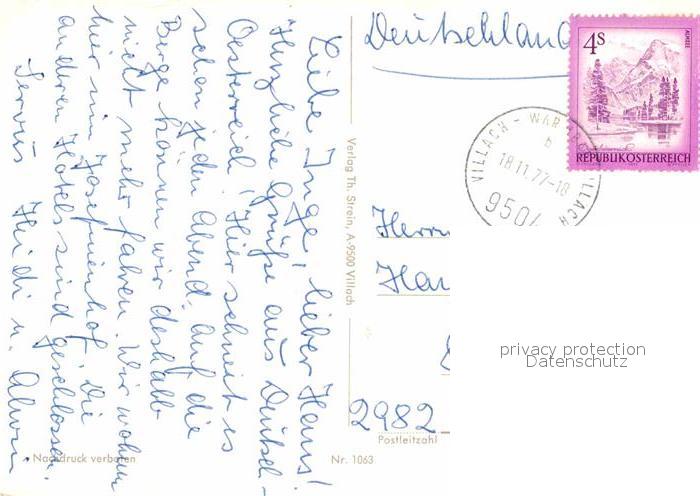 Liebe Inge, lieber Hans!
Herzliche Grüße aus Deutsch-
Oesterreich! Hier schneit es
schon jeden Abend. Auf die
Berge können wir deshalb
nicht mehr fahren. Wir wohnen
hier im Josefinenhof. Die
anderen Hotels sind geschlossen.
Servus Heidi u. Alwin
Nachdruck verboten
Verlag Th. Strein, A-9500 Villach
Nr. 1063
Deutschland
4S
ALMSEE
REPUBLIK ÖSTERREICH
VILLACH - WAR VILLACH
b
18.11.77-18
9504
Herrn
Han
2982
Postleitzahl
privacy protection
Datenschutz